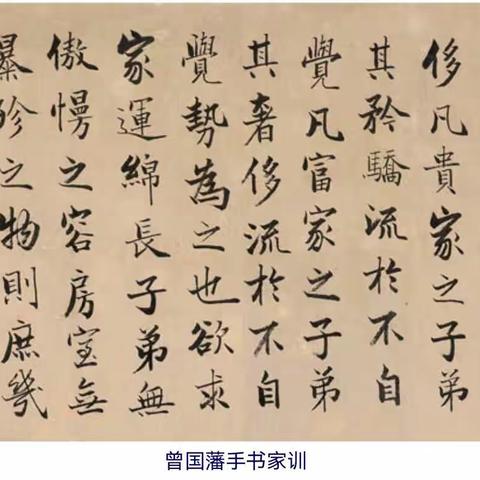 侈凡貴家之子弟
其矜驕流於不自
覺凡富家之子弟
其奢侈流於不自
覺勢為之也欲求
家運綿長子弟無
傲慢之容房室無
暴殄之物則庶幾
曾国藩手书家训